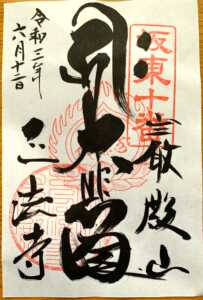 坂東十番
巌殿山
大悲閣
正法寺
令和三年
六月十二日